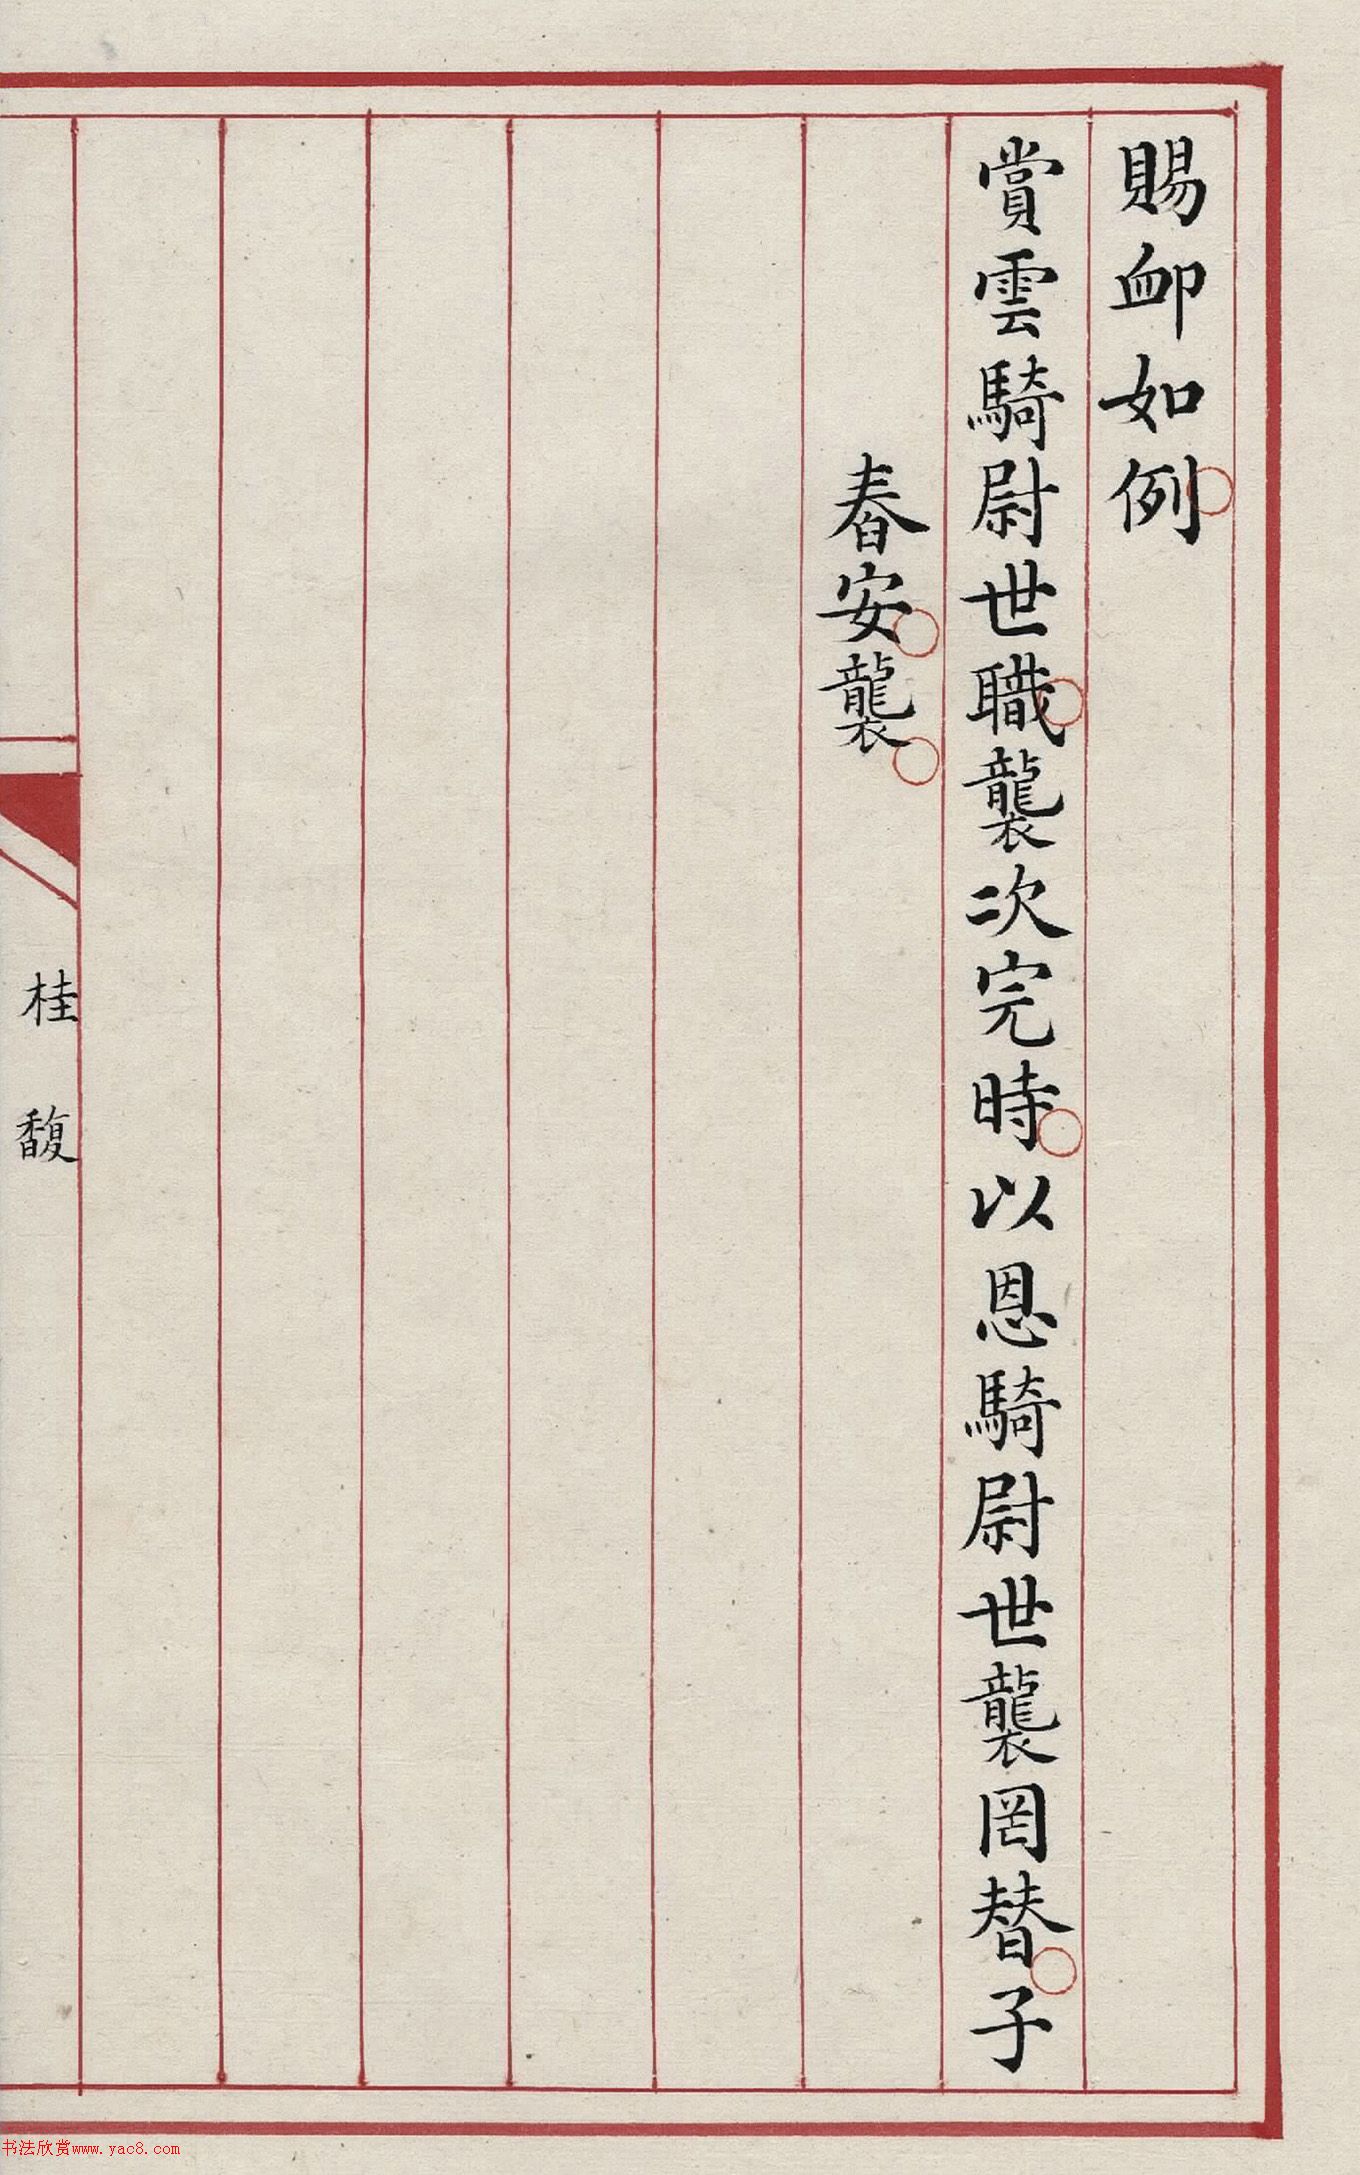 賜卹如例
賞雲騎尉世職襲次完時以恩騎尉世襲罔替子
春安襲
桂馥
书法欣赏www.yac8.com